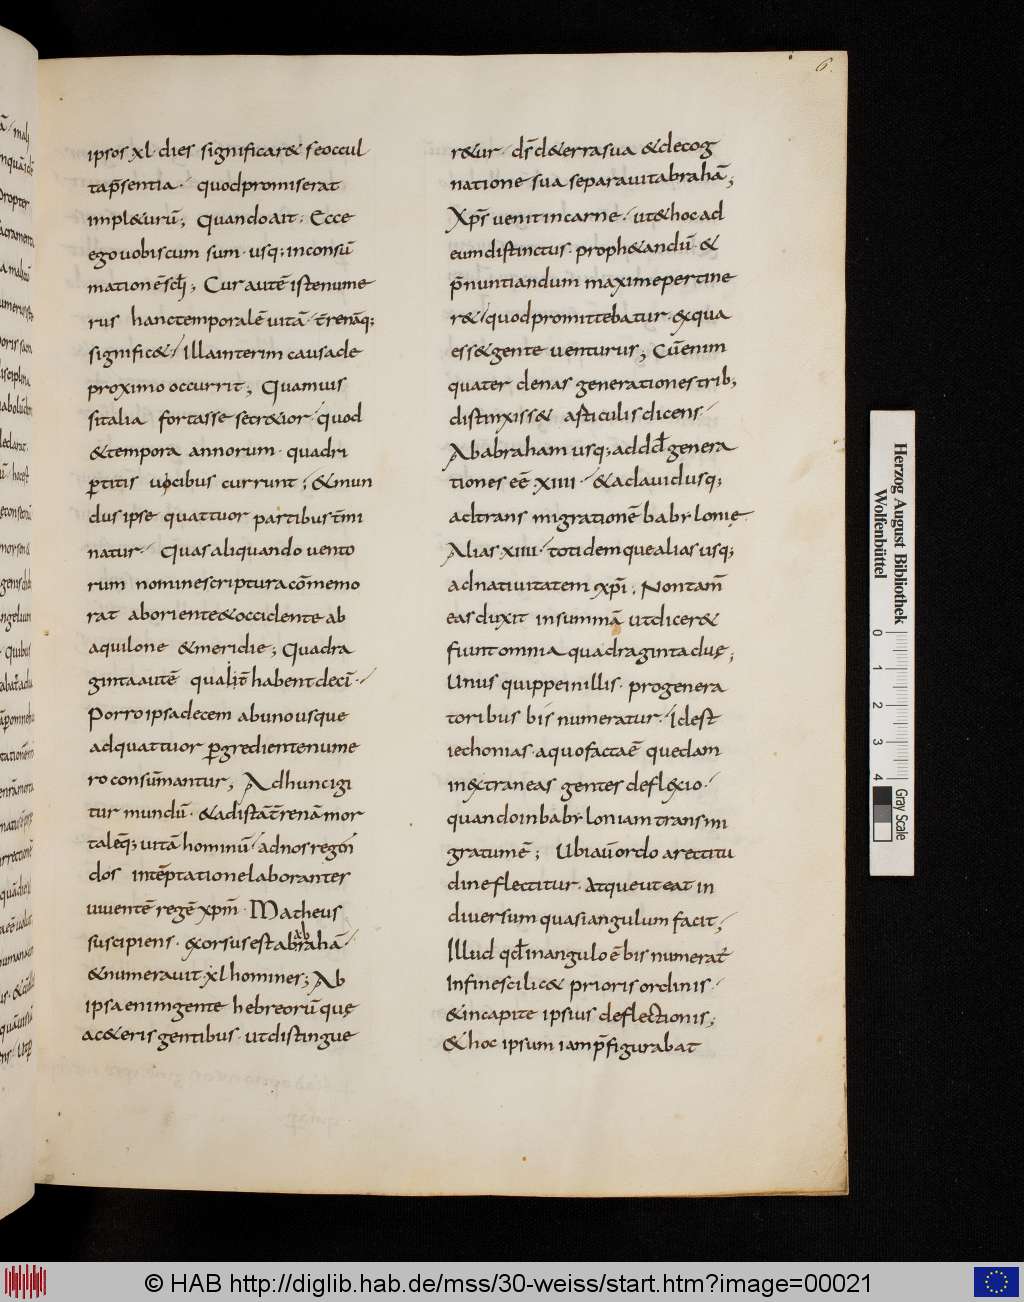 6.
ipsos xl· dies significar& se occul
tap̄sentia·/ quodpromiserat
impl&urū; Quandoait· Ecce
egouobiscum sum· usq; inconsū
mationēsc̄li; Cur autē istenume
rus hanctemporalē uitā·/ t̄renāq;
signific&·/ Illainterim causade
proximo occurrit; Quamuis
sitalia fortasse secr&ior·/ quod
&tempora annorum· quadri
ꝑtitis uicibus currunt; &mun
dusipse quattuor partibust̄mi
natur·/ Quasaliquando uento
rum nominescripturacōmemo
rat aboriente&occidente ab
aquilone &meridie; Quadra
gintaautē qualit̄ habentdecī·/
Porroipsadecem abunousque
adquattuor ꝑgredientenume
roconsūmantur; Adhuncigi
tur mundū· &adistāt̄renāmor
taleq̄; uitā hominū·/ adnosregen
dos intēptationelaboranter
uiuentē regē xp̄m· Matheus
suscipiens· exorsusestabrahā·/
ab
&numerauit xl homines; Ab
ipsaenimgente hebreorū quę
ac&erisgentibus· utdistingue
r&ur· d̄s d&errasua &decog
natione sua separauitabrahā;
Xp̄s uenitincarne·/ ut&hocad
eumdistinctus· proph&andū· &
p̄nuntiandum maximepertine
r&·/ quodpromittebatur· exqua
ess&gente uenturus; Cūenim
quater denas generationestrib;
distinxiss& afticulisdicens·/
Ababraham usq; addd̄ genera
tiones eē· xiiii·/ &adauidusq;
adtrans migrationē babylonię
Alias xiiii·/ totidemquealiasusq;
adnatiuitatem xp̄i; Nontam̄
easduxit insummā utdicer&
fiuntomnia quadragintaduę;
Unus quippeinillis· progenera
toribus bis numeratur·/ Idest
iechonias· aquofactaē quedam
inextraneas gentes deflexio·/
quandoinbabyloniamtransmi
gratumē; Ubiaūordo arectitu
dineflectitur· Atqueuteat in
diuersum quasiangulum facit;
Illud qd̄inangulo ē bis numerat̄
Infinescilic& prioris ordinis·/
&incapite ipsius deflectionis;
&hoc ipsum iamp̄figurabat
Herzog August Bibliothek
Wolfenbüttel
0 1 2 3 4
Gray Scale
© HAB http://diglib.hab.de/mss/30-weiss/start.htm?image=00021